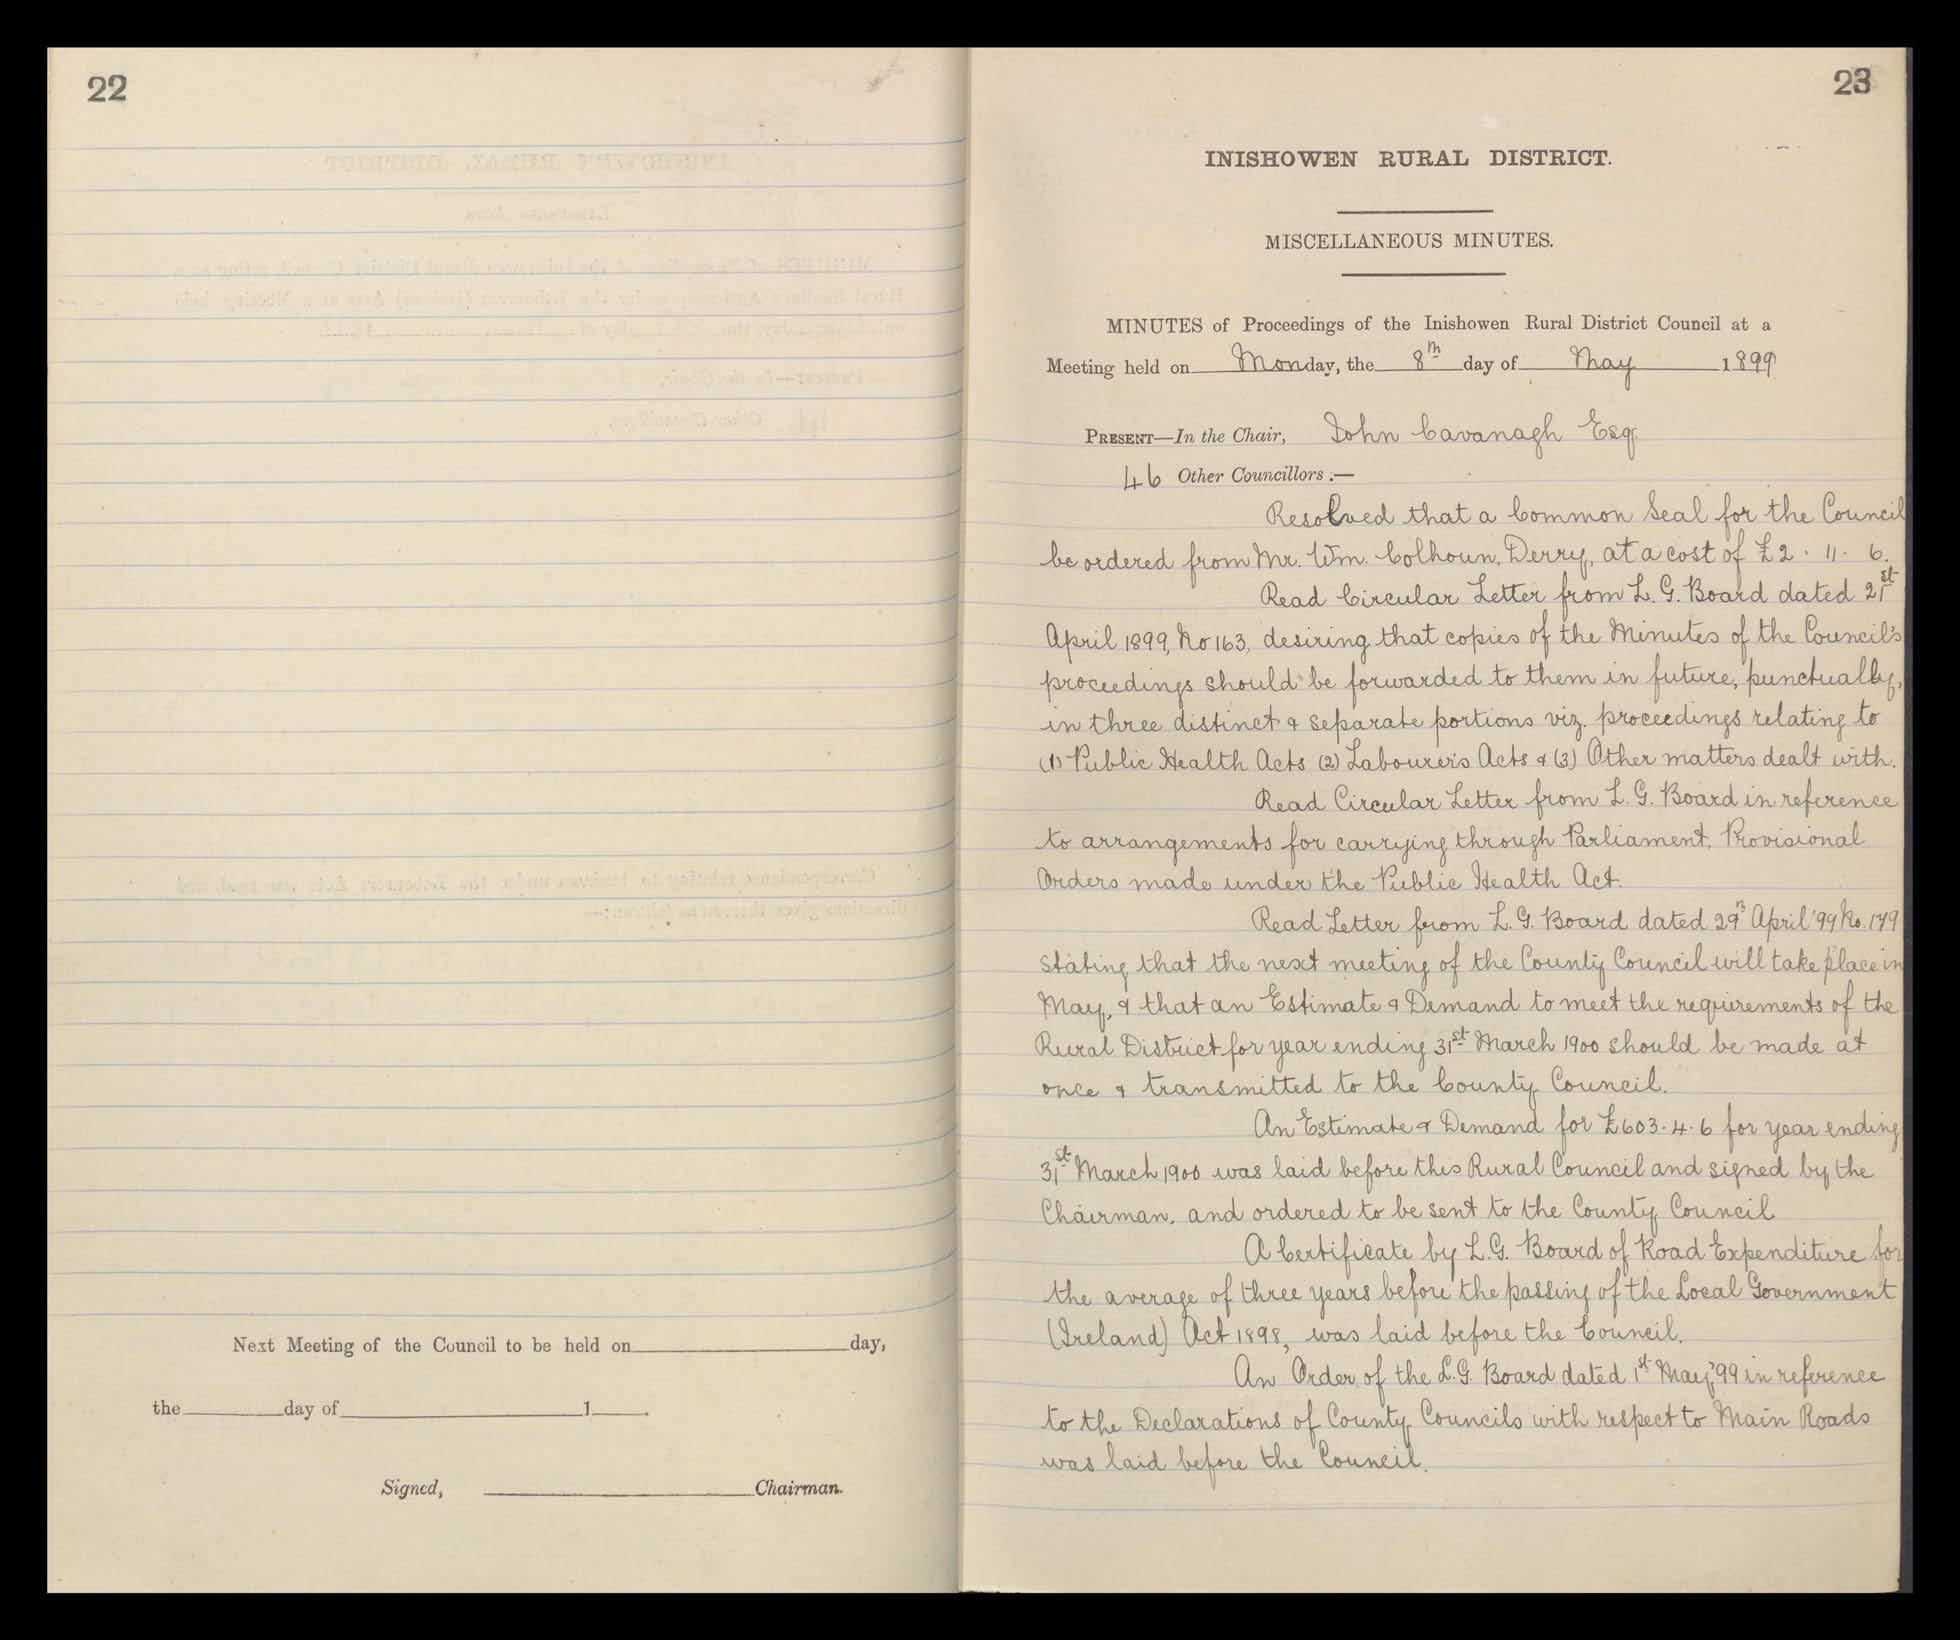 22
Next Meeting of the Council to be held on day,
the day of 1 .
Signed, Chairman.
23
INISHOWEN RURAL DISTRICT.
MISCELLANEOUS MINUTES.
MINUTES of Proceedings of the Inishowen Rural District Council at a
Meeting held on Monday, the 8th day of May 1899
PRESENT—In the Chair, John Cavanagh Esq.
46 Other Councillors :—
Resolved that a Common Seal for the Council
be ordered from Mr. Wm. Colhoun, Derry, at a cost of £2 . 11 . 6.
Read Circular Letter from L. G. Board dated 21st
April 1899, No 163, desiring that copies of the Minutes of the Council's
proceedings should be forwarded to them in future, punctually,
in three distinct & separate portions viz. proceedings relating to
(1) Public Health Acts (2) Labourers Acts & (3) Other matters dealt with.
Read Circular Letter from L. G. Board in reference
to arrangements for carrying through Parliament, Provisional
Orders made under the Public Health Act.
Read Letter from L. G. Board dated 29th April '99 No. 179
stating that the next meeting of the County Council will take place in
May, & that an Estimate & Demand to meet the requirements of the
Rural District for year ending 31st March 1900 should be made at
once & transmitted to the County Council.
An Estimate & Demand for £603.4.6 for year ending
31st March 1900 was laid before this Rural Council and signed by the
Chairman, and ordered to be sent to the County Council
A Certificate by L.G. Board of Road Expenditure for
the average of three years before the passing of the Local Government
(Ireland) Act 1898, was laid before the Council.
An Order of the L.G. Board dated 1st May '99 in reference
to the Declarations of County Councils with respect to Main Roads
was laid before the Council.